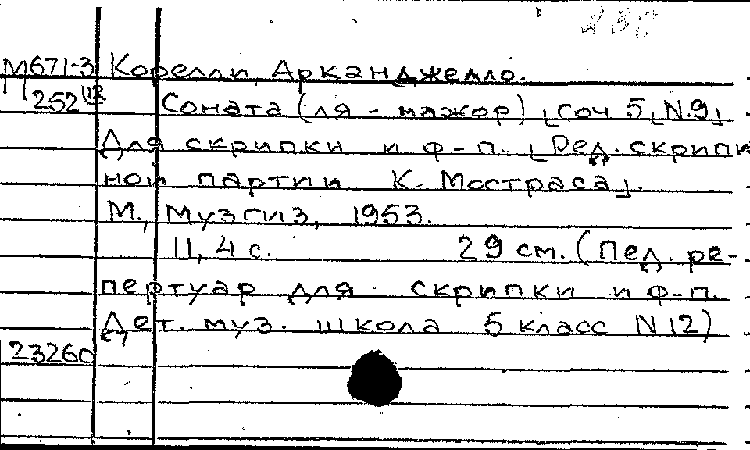 М671-3 Корелли, Арканджелло.
252 Соната (ля - мажор) [соч 5[N.9]
Для скрипки и ф-п. [Ред. скрипич
ной партии К. Мостраса].
М., Музгиз, 1953.
11, 4 с. 29 см. (Пед. ре-
пертуар для скрипки и ф-п.
Дет. муз. школа 5 класс N 12)
23260